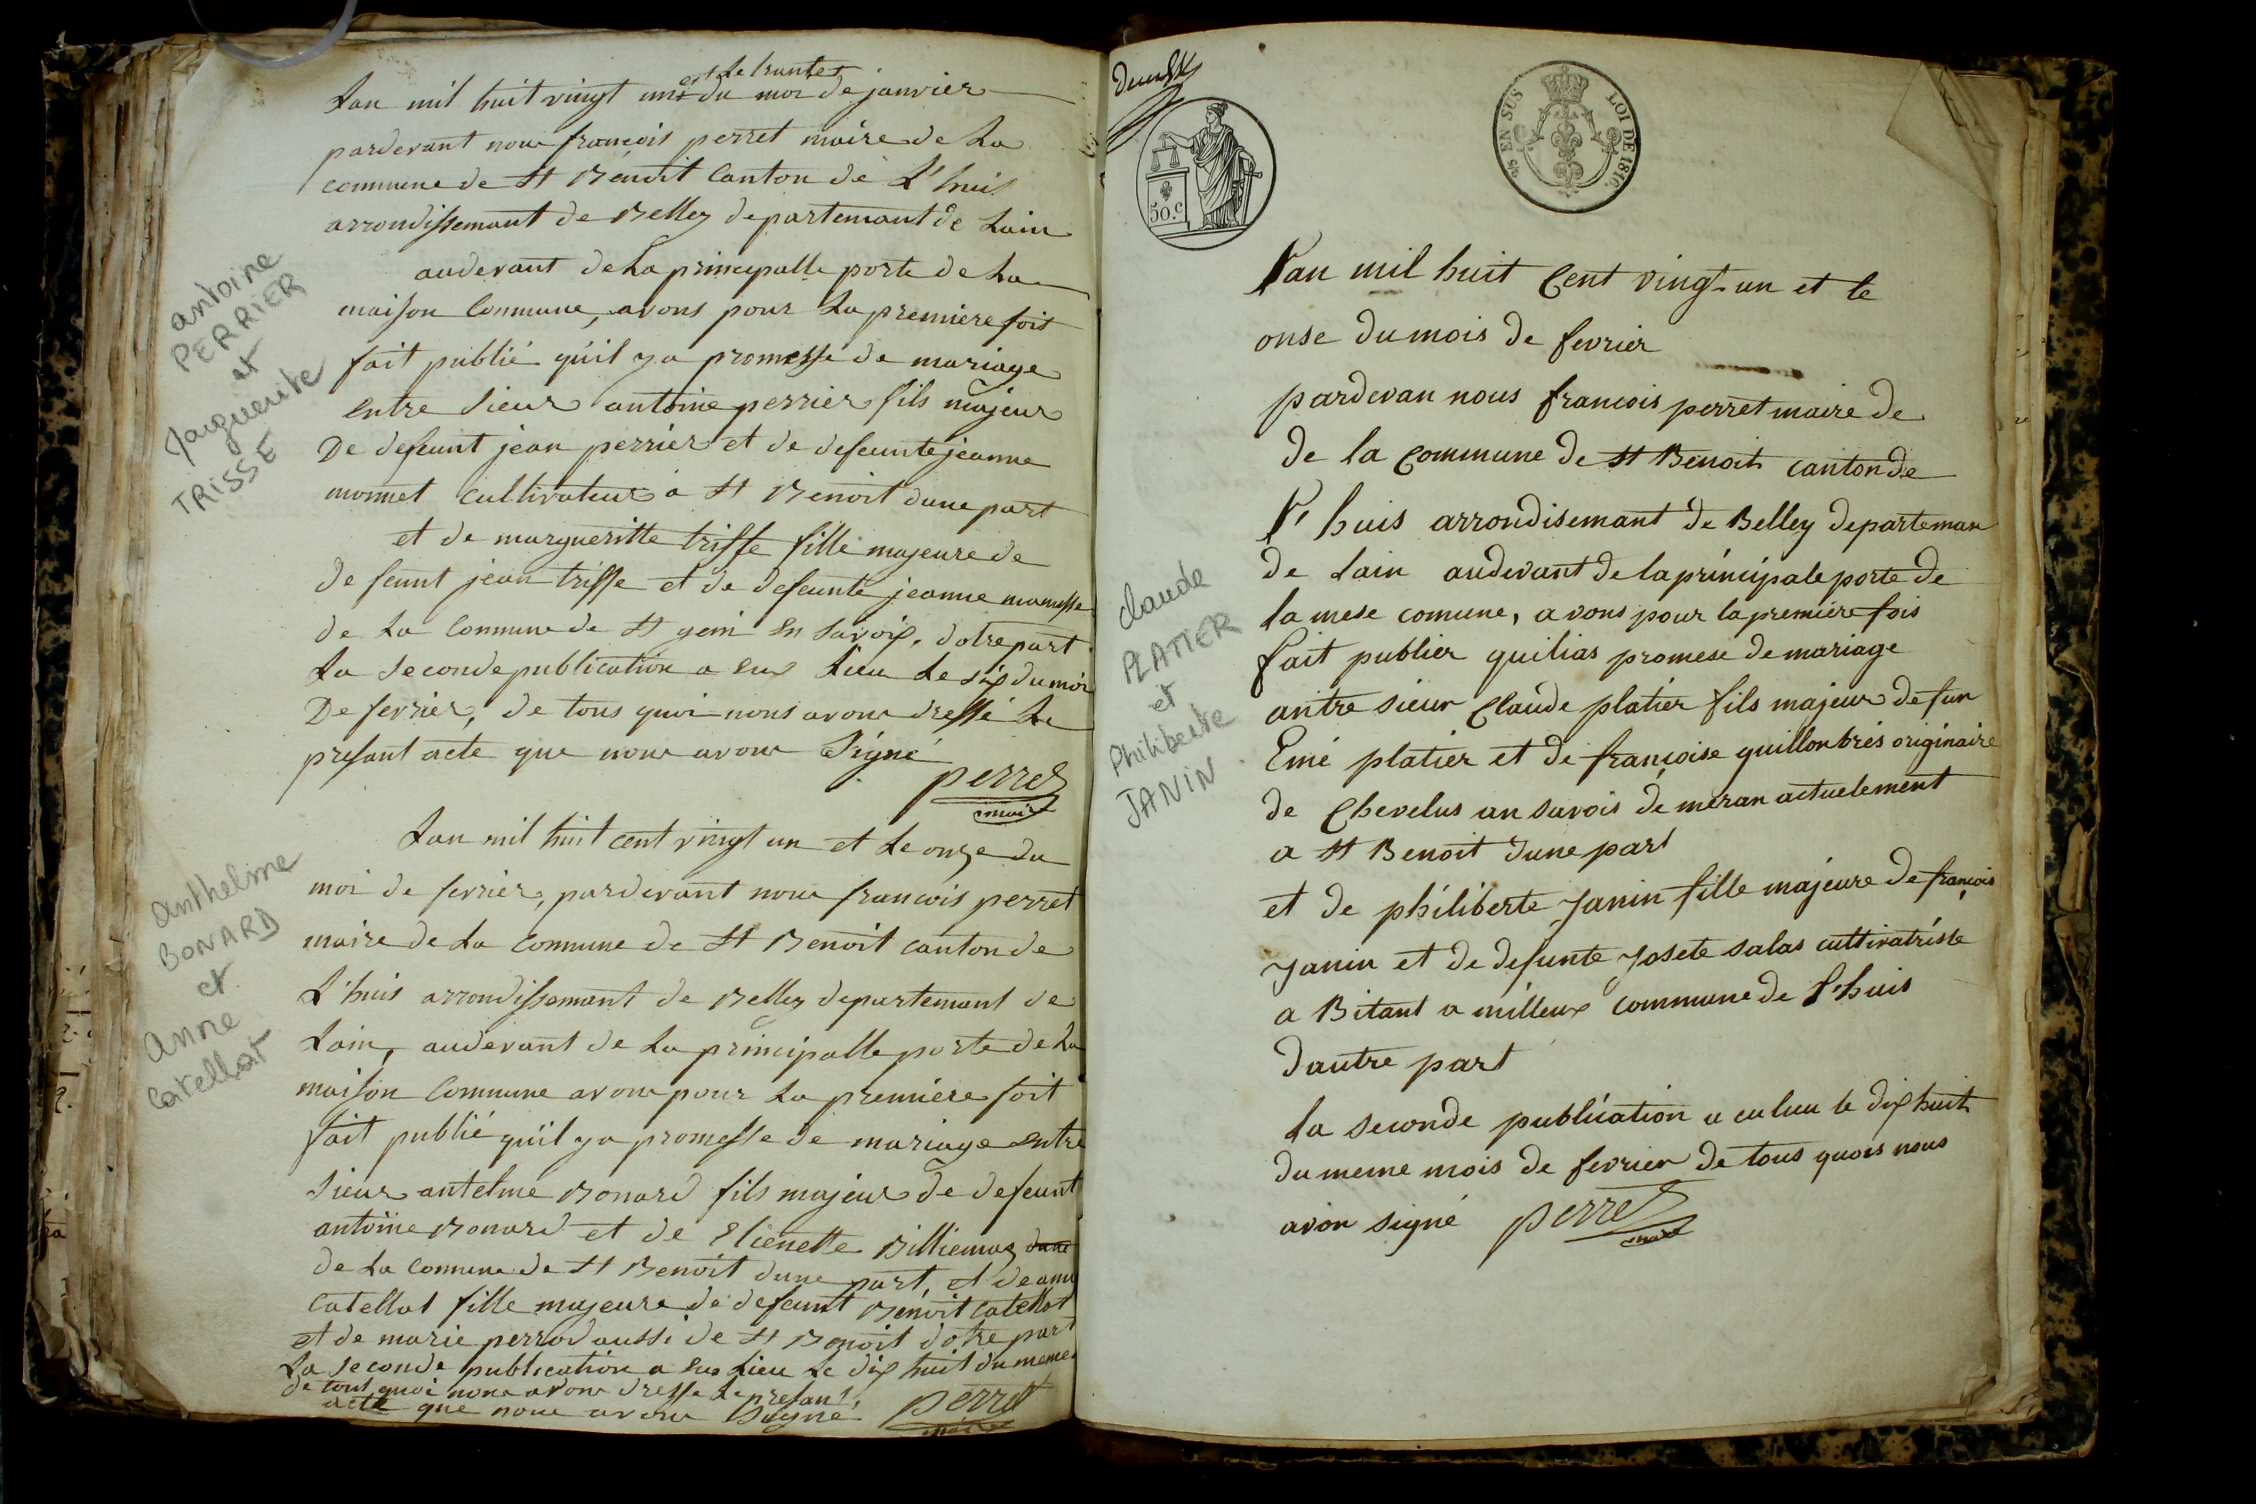 antoine
PERRIER
et
Marguerite
TRISSE
anthelme
BONARD
et
Anne
Catellat
et le trante
Lan mil huit vingt une du moi de janvier
pardevant nous françois perret maire de La
commune de St Benoit Canton de L'huis
arrondissemant de Belley departemant de Lain
audevant de La principalle porte de La
maison Commune, avons pour La premiere foit
fait publié qu'il y a promesse de mariage
entre Sieur antoine perrier fils majeur
De defeunt jean perrier et de defeunte jeanne
monnet cultivateur à St Benoit dune part
et de margueritte trisse fille majeure de
defeunt jean trisse et de defeunte jeanne mamesse
de La Commune de St geni en Savoix, dotre part
La Seconde publication a eu Lieu Le six du moi
De fevrier, de tous quoi nous avons dressé Le
presant acte que nous avons Signé
perret
maire
Lan mil huit cent vingt un et Le onze du
moi de fevrier, pardevant nous francois perret
maire de La Commune de St Benoit canton de
L'huis arrondissemant de Belley departemant de
Lain, audevant de La principalle porte de La
maison Commune avons pour La premiere foit
fait publié qu'il y a promesse de mariage entre
Sieur antelme Bonard fils majeur de defeunt
antoine Bonard et de Etienette Billiemaz dune
de La Commune de St Benoit dune part, et de anne
Catellat fille majeure de defeunt Benoit Catellat
et de marie perrod aussi de St Benoit dotre part
La Seconde publication a eu Lieu Le dix huit du meme
de tout quoi nous avons dressé Le presant
acte que nous avons Signé perret
maire
50.c
EN SUS
LOI DE 1816.
claude
PLATIER
et
Philiberte
JANIN
L'an mil huit Cent vingt-un et le
onse du mois de fevrier
pardevan nous francois perret maire de
de la Commune de St Benoit canton de
L'huis arrondisemant de Belley departeman
de Lain audevant de la principale porte de
la mese comune, avons pour la premiére fois
fait publier quilias promese de mariage
antre sieur Claude platier fils majeur de fun
Emé platier et de françoise guillonbres originaire
de Chevelus an savois demeran actuelement
a St Benoit dune part
et de philiberte Janin fille majeure de françois
Janin et de defunte Josete salas cultivatriste
a Bitant a millieux commune de L'huis
dautre part
La seconde publication a eu lieu le dix huit
du meme mois de fevrier de tous quois nous
avon signé perret
maire